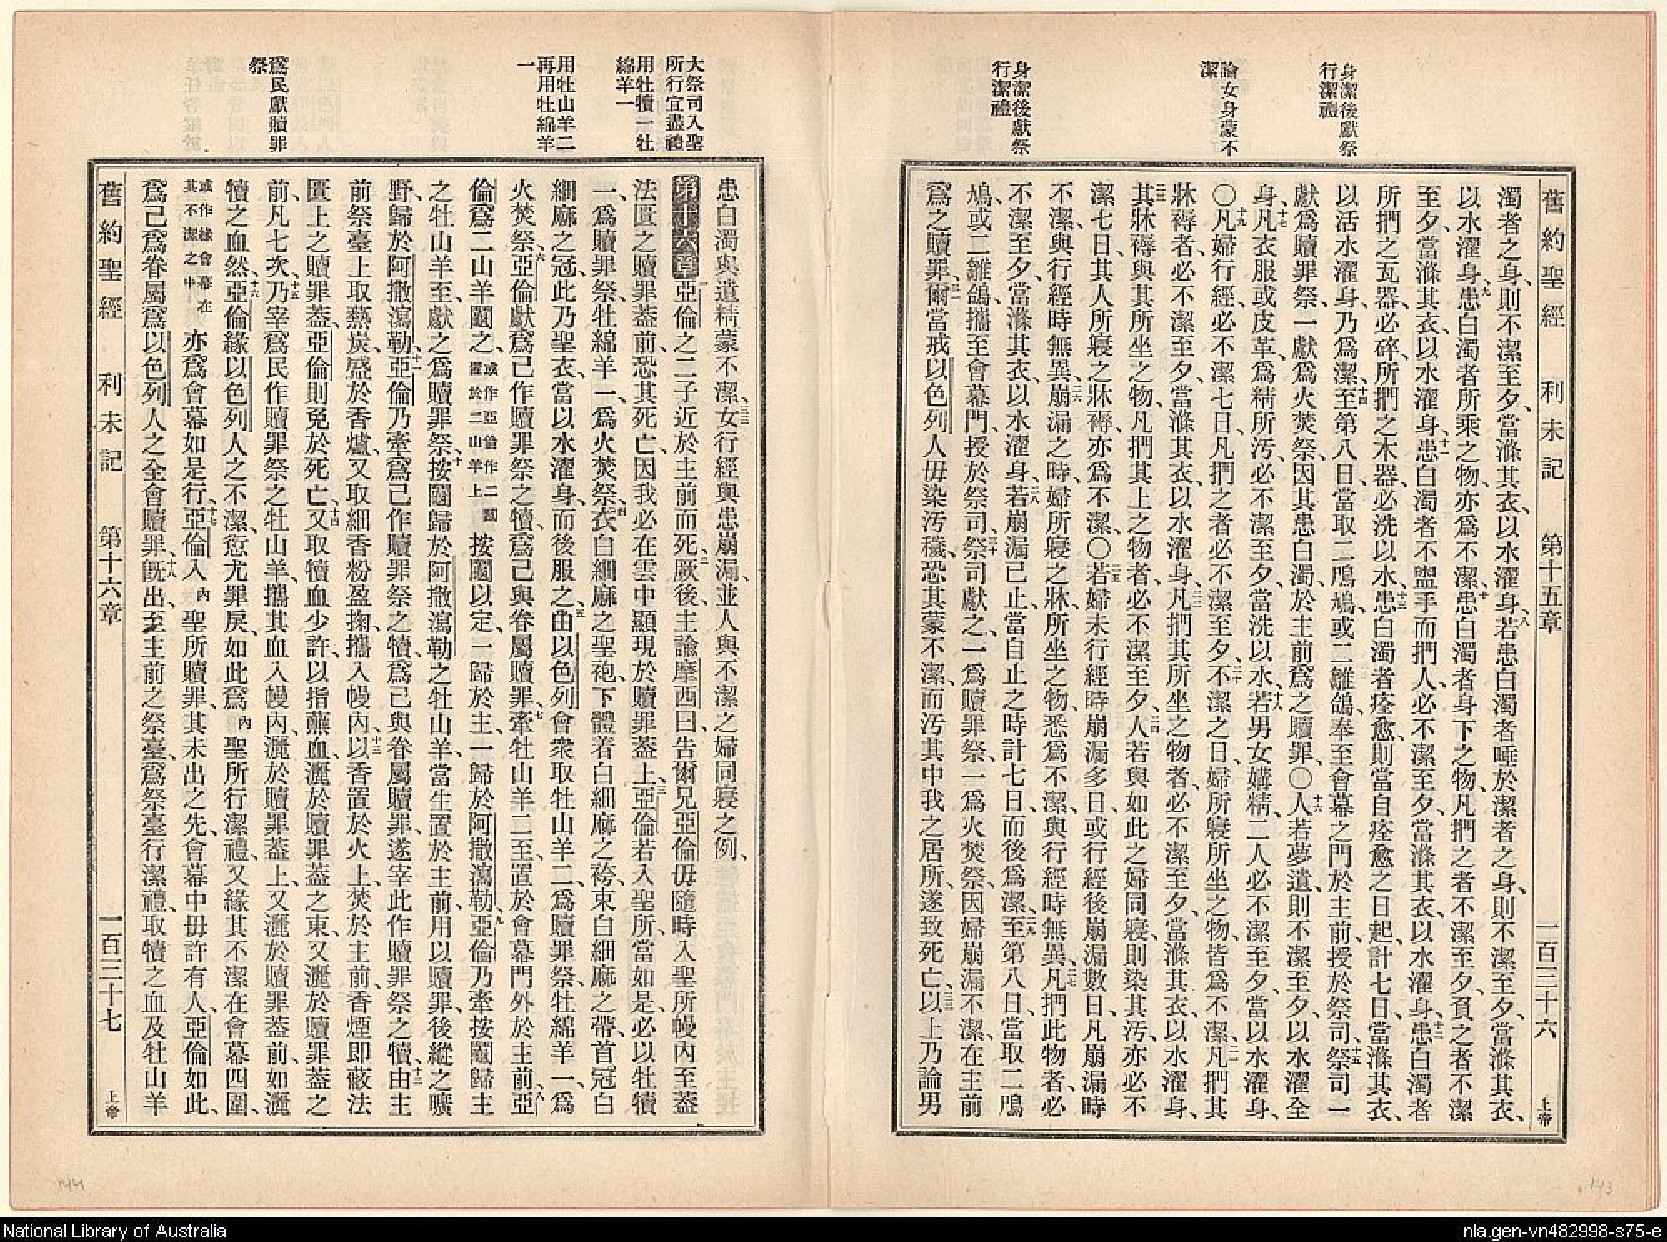 身潔後獻祭
行潔禮
論女身蒙不
潔
身潔後獻祭
行潔禮
舊約聖經 利未記 第十五章 一百三十六 上帝
濁者之身、則不潔至夕、當滌其衣、以水濯身、八若患白濁者唾於潔者之身、則不潔至夕、當滌其衣、
以水濯身、九患白濁者所乘之物、亦爲不潔、十患白濁者身下之物、凡捫之者不潔至夕、負之者不潔
至夕、當滌其衣、以水濯身、十一患白濁者不盥手而捫人、必不潔至夕、當滌其衣、以水濯身、十二患白濁者
所捫之瓦器必碎、所捫之木器必洗以水、十三患白濁者痊愈、則當自痊愈之日起、計七日、當滌其衣、
以活水濯身、乃爲潔、十四至第八日、當取二鳲鳩、或二雛鴿、奉至會幕之門、於主前授於祭司、十五祭司一
獻爲贖罪祭、一獻爲火焚祭、因其患白濁、於主前爲之贖罪、〇十六人若夢遺、則不潔至夕、以水濯全
身、十七凡衣服或皮革、爲精所污、必不潔至夕、當洗以水、十八若男女媾精、二人必不潔至夕、當以水濯身、
〇十九凡婦行經、必不潔七日、凡捫之者必不潔至夕、二十不潔之日、婦所寢所坐之物皆爲不潔、二一凡捫其
牀褥者、必不潔至夕、當滌其衣、以水濯身、二二凡捫其所坐之物者、必不潔至夕、當滌其衣、以水濯身、
二三其牀褥與其所坐之物、凡捫其上之物者、必不潔至夕、二四人若與如此之婦同寢、則染其污、亦必不
潔七日、其人所寢之牀褥亦爲不潔、〇二五若婦未行經時崩漏多日、或行經後崩漏數日、凡崩漏時
不潔、與行經時無異、二六崩漏之時、婦所寢之牀、所坐之物、悉爲不潔、與行經時無異、二七凡捫此物者、必
不潔至夕、當滌其衣、以水濯身、二八若崩漏已止、當自止之時計七日、而後爲潔、二九至第八日、當取二鳲
鳩、或二雛鴿、攜至會幕門、授於祭司、三十祭司獻之、一爲贖罪祭、一爲火焚祭、因婦崩漏不潔、在主前
爲之贖罪、三一爾當戒以色列人毋染污穢、恐其蒙不潔、而污其中我之居所、遂致死亡、三二以上乃論男
大祭司入聖
所行宜盡禮
用牡犢一牡
綿羊一
用牡山羊二
再用牡綿羊
一
爲民獻贖罪
祭
患白濁與遺精蒙不潔、三三女行經與患崩漏、並人與不潔之婦同寢之例、
第十六章 一亞倫之二子近於主前而死、二厥後主諭摩西曰、告爾兄亞倫、毋隨時入聖所幔內、至蓋
法匱之贖罪蓋前、恐其死亡、因我必在雲中顯現於贖罪蓋上、三亞倫若入聖所、當如是、必以牡犢
一、爲贖罪祭、牡綿羊一、爲火焚祭、四衣白細麻之聖袍、下體着白細麻之袴、束白細麻之帶、首冠白
細麻之冠、此乃聖衣、當以水濯身、而後服之、五由以色列會衆取牡山羊二、爲贖罪祭、牡綿羊一、爲
火焚祭、六亞倫獻爲己作贖罪祭之犢、爲己與眷屬贖罪、七牽牡山羊二、至置於會幕門外於主前、八亞
倫爲二山羊鬮之、或作亞倫作二鬮置於二山羊上 按鬮以定、一歸於主、一歸於阿撒瀉勒、九亞倫乃牽按鬮歸主
之牡山羊至、獻之爲贖罪祭、十按鬮歸於阿撒瀉勒之牡山羊、當生置於主前、用以贖罪、後縱之曠
野、歸於阿撒瀉勒、十一亞倫乃牽爲己作贖罪祭之犢、爲己與眷屬贖罪、遂宰此作贖罪祭之犢、十二由主
前祭臺上、取爇炭、盛於香爐、又取細香粉盈掬、攜入幔內、十三以香置於火上、焚於主前、香煙卽蔽法
匱上之贖罪蓋、亞倫則免於死亡、十四又取犢血少許、以指蘸血、灑於贖罪蓋之東、又灑於贖罪蓋之
前、凡七次、十五乃宰爲民作贖罪祭之牡山羊、攜其血入幔內、灑於贖罪蓋上、又灑於贖罪蓋前、如灑
犢之血然、十六亞倫緣以色列人之不潔、愆尤罪戾、如此爲內聖所行潔禮、又緣其不潔在會幕四圍、
或作緣會幕在其不潔之中 亦爲會幕如是行、十七亞倫入內聖所贖罪、其未出之先、會幕中毋許有人、亞倫如此
爲己爲眷屬爲以色列人之全會贖罪、十八旣出、至主前之祭臺、爲祭臺行潔禮、取犢之血及牡山羊
舊約聖經 利未記 第十六章 一百三十七 上帝
144
143
National Library of Australia
nla.gen-vn482998-s75-e